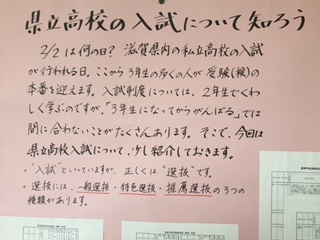 県立高校の入試について知ろう
2/2は何の日？ 滋賀県内の私立高校の入試
が行われる日。ここから3年生の多くの人が受験(検)の
本番を迎えます。入試制度については、2年生でくわ
しく学ぶのですが、「3年生になってからがんばる」では
間に合わないことがたくさんあります。そこで、今回は
県立高校入試について、少し紹介しておきます。
・"入試"といっていますが、正しくは"選抜"です。
・選抜には、一般選抜・特色選抜・推薦選抜の3つの
種類があります。